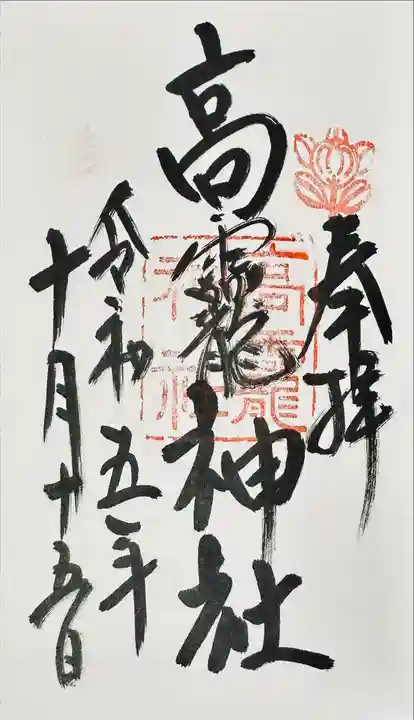 奉拝
高龗神社
高龗神社
令和五年
十月十五日